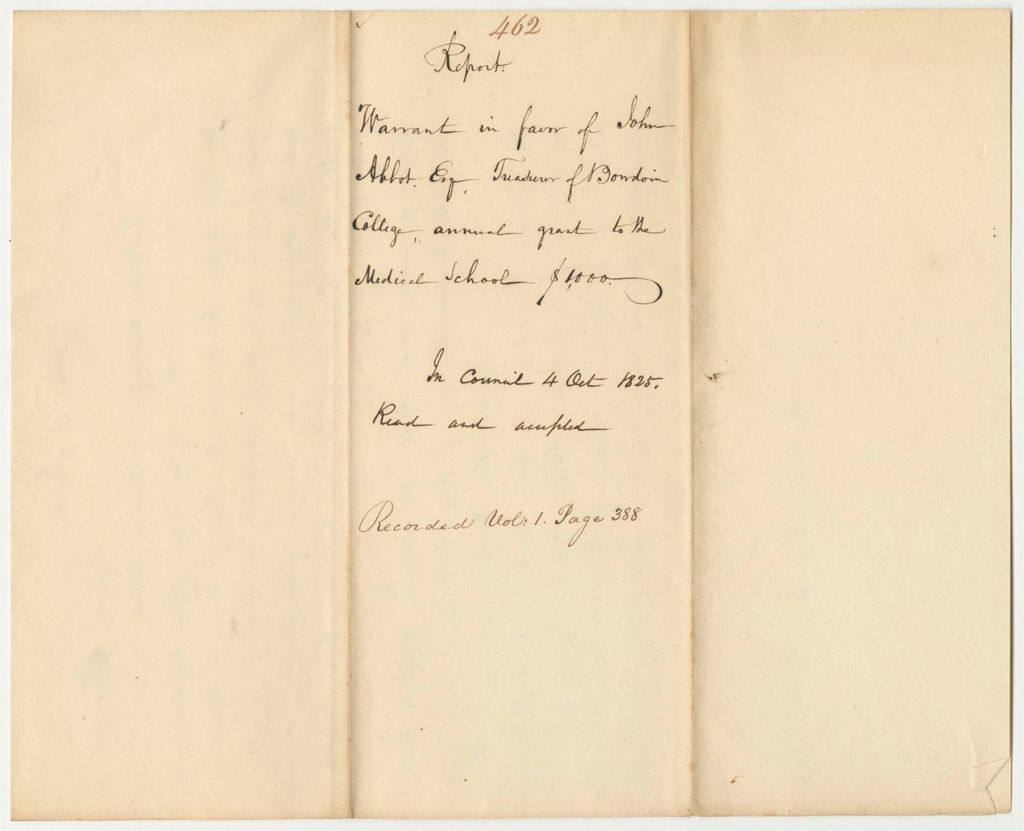 462
Report.
Warrant in favor of John
Abbot. Esq, Treasurer of Bowdoin
College, annual grant to the
Medical School $1,000.
In Council 4 Oct 1825.
Read and accepted
Recorded Vol: 1. Page 388